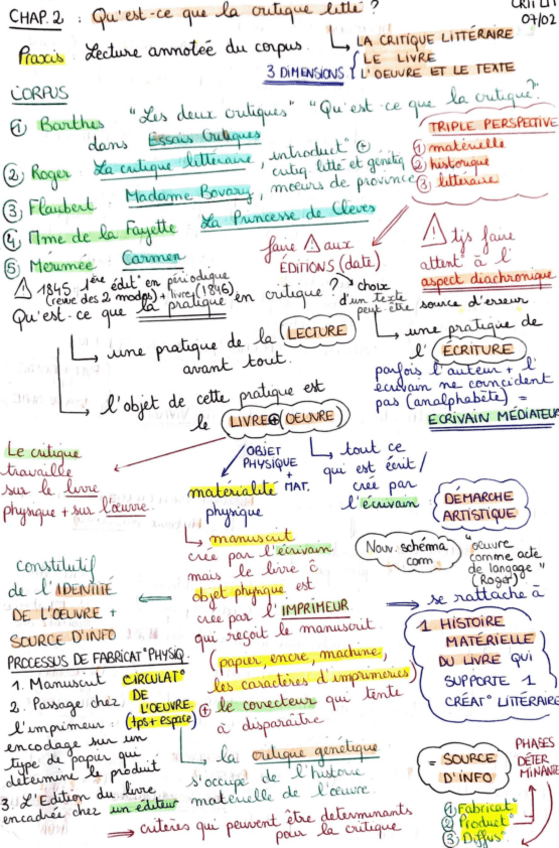 CHAP. 2 : Qu'est-ce que la critique litté ?
CRIT LIT
07/02
Praxis : Lecture annotée du corpus.
LA CRITIQUE LITTÉRAIRE
3 DIMENSIONS
LE LIVRE
L'OEUVRE ET LE TEXTE
CORPUS
① Barthes "Les deux critiques" "Qu'est-ce que la critique?"
dans Essais Critiques
② Roger : La critique littéraire, introduct° ⊕
critiq. litté et génétiq
③ Flaubert : Madame Bovary, moeurs de province
④ Mme de la Fayette La Princesse de Clèves
⑤ Mérimée : Carmen
TRIPLE PERSPECTIVE
① matérielle
② historique
③ littéraire
⚠ 1845 1ère édit° en périodique
(revue des 2 modes) + livre (1846)
faire ⚠ aux
ÉDITIONS (date)
choix
d'un texte
peut être source d'erreur
⚠ tjs faire
attent° à l'
aspect diachronique
Qu'est-ce que la pratique en critique ?
une pratique de la LECTURE
avant tout.
une pratique de
l' ÉCRITURE
parfois l'auteur + l'
écrivain ne coincident
pas (analphabète) =
ECRIVAIN MÉDIATEUR
l'objet de cette pratique est
le LIVRE ⊕ (OEUVRE)
Le critique
travaille
sur le livre
physique + sur l'œuvre.
OBJET
PHYSIQUE
+
MAT.
matérialité
physique
tout ce
qui est écrit /
crée par
l'écrivain :
DÉMARCHE
ARTISTIQUE
manuscrit
crée par l'écrivain
mais le livre c̄
objet physique est
crée par l'IMPRIMEUR
qui reçoit le manuscrit
(papier, encre, machine,
les caractères d'imprimeries)
⊕ le correcteur qui tente
à disparaître
Nouv. schéma
com
"oeuvre
comme acte
de langage"
(Roger)
se rattache à
1 HISTOIRE
MATÉRIELLE
DU LIVRE QUI
SUPPORTE 1
CRÉAT° LITTÉRAIRE
constitutif
de l'IDENTITÉ
DE L'OEUVRE +
SOURCE D'INFO
PROCESSUS DE FABRICAT° PHYSIQ.
1. Manuscrit
2. Passage chez
l'imprimeur :
encodage sur un
type de papier qui
détermine le produit
3. L'Edition du livre
encadrée chez un éditeur
CIRCULAT°
DE
L'OEUVRE
(tps + espace)
la critique génétique
s'occupe de l'histoire
matérielle de l'œuvre.
⇒ critères qui peuvent être déterminants
pour la critique
= SOURCE
D'INFO
PHASES
DÉTER
MINANTES
① Fabricat°
② Product°
③ Diffus°